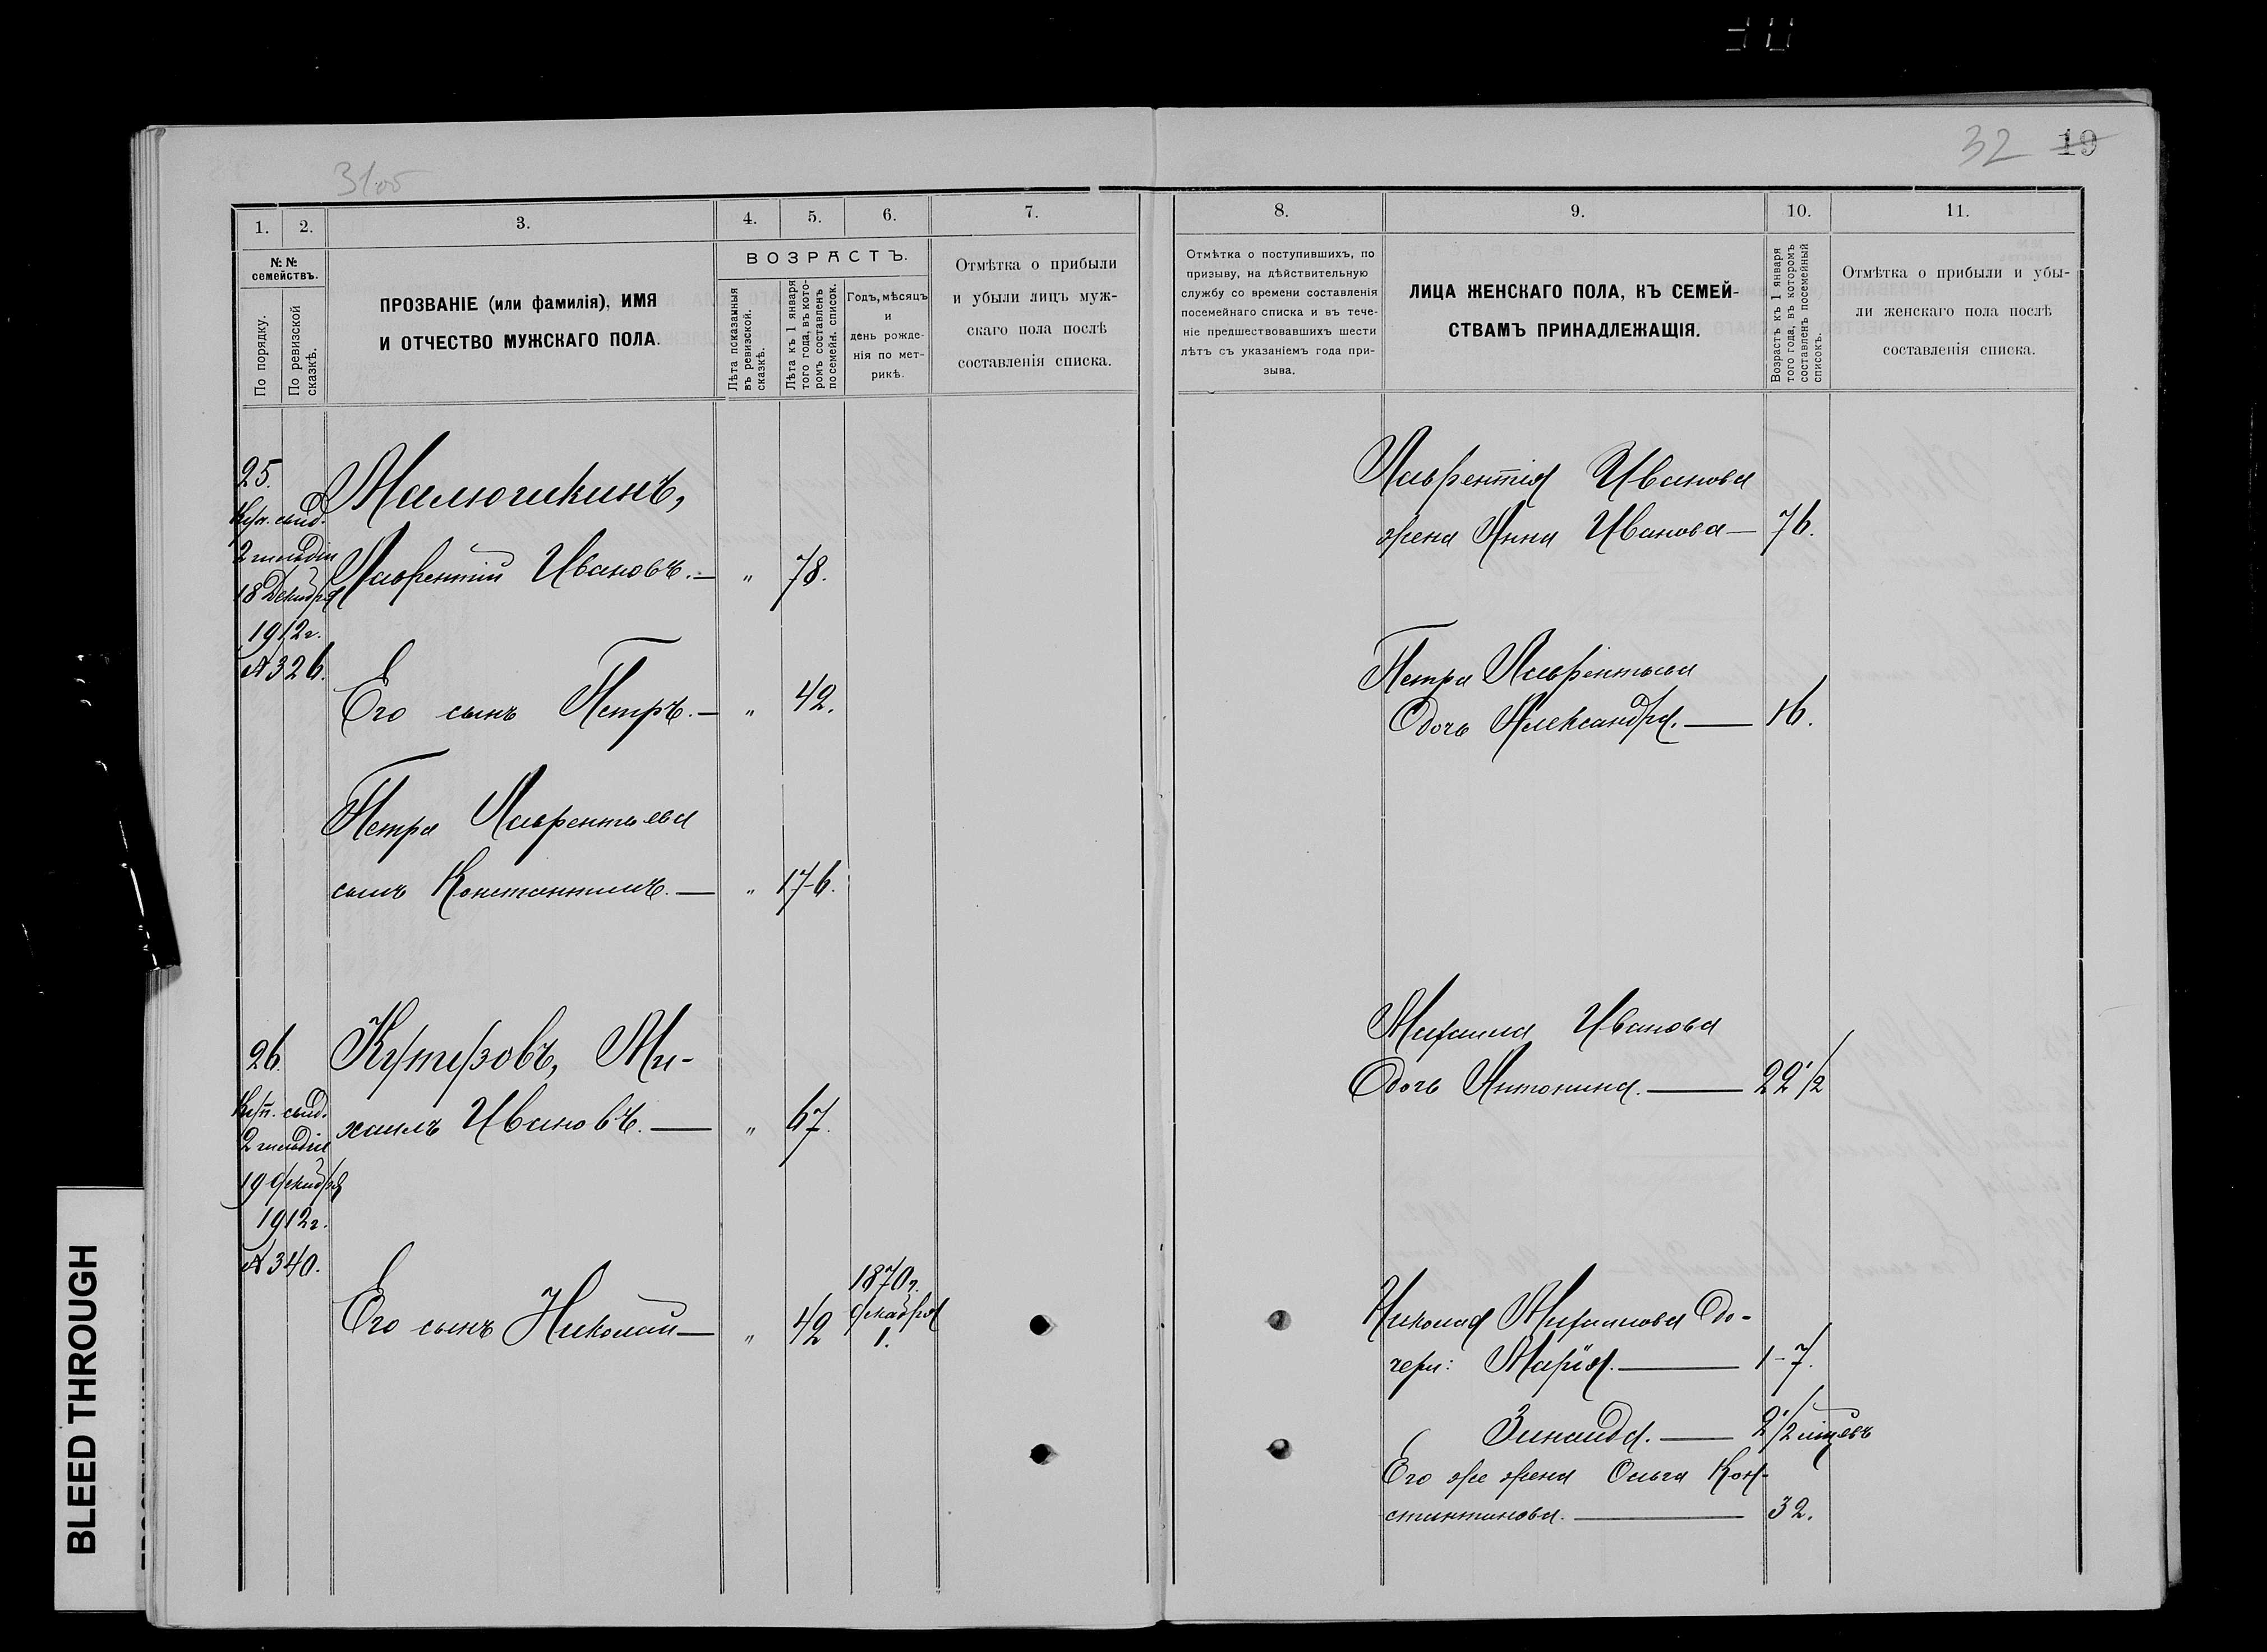 31 об
32 19
1.
2.
3.
4.
5.
6.
7.
№ №
семействъ.
По порядку.
По ревизской
сказкѣ.
ПРОЗВАНІЕ (или фамилія), ИМЯ
И ОТЧЕСТВО МУЖСКАГО ПОЛА.
ВОЗРАСТЪ.
Лѣта показанныя
въ ревизской.
сказкѣ.
Лѣта къ 1 января
того года, въ кото-
ромъ составленъ
посемейн. список.
Годъ, мѣсяцъ
и
день рожде-
нія по мет-
рикѣ.
Отмѣтка о прибыли
и убыли лицъ муж-
скаго пола послѣ
составленія списка.
25.
Куп. свид.
2 гильдіи
18 Декабря
1912 г.
№ 326.
Малюшкинъ,
Лаврентій Ивановъ.— „ 78.
Его сынъ Петръ.— „ 42.
Петра Лаврентьева
сынъ Константинъ.— „ 17-6.
26.
Куп. свид.
2 гильдіи
19 декабря
1912 г.
№ 340.
Кутузовъ, Ми-
хаилъ Ивановъ.— „ 67.
Его сынъ Николай— „ 42
1870 г.
декабря
1.
8.
9.
10.
11.
Отмѣтка о поступившихъ, по
призыву, на дѣйствительную
службу со времени составленія
посемейнаго списка и въ тече-
ніе предшествовавшихъ шести
лѣтъ съ указаніемъ года при-
зыва.
ЛИЦА ЖЕНСКАГО ПОЛА, КЪ СЕМЕЙ-
СТВАМЪ ПРИНАДЛЕЖАЩІЯ.
Возрастъ къ 1 января
того года, въ которомъ
составленъ посемейный
списокъ.
Отмѣтка о прибыли и убы-
ли женскаго пола послѣ
составленія списка.
Лаврентія Иванова
жена Анна Иванова— 76.
Петра Лаврентьева
дочь Александра.— 16.
Михаила Иванова
дочь Антонина.— 22 1/2
Николая Михайлова до-
чери: Марія.— 1-7.
Зинаида.— 2 1/2 мѣсяцевъ
Его же жена Ольга Кон-
стантинова.— 32.
BLEED THROUGH